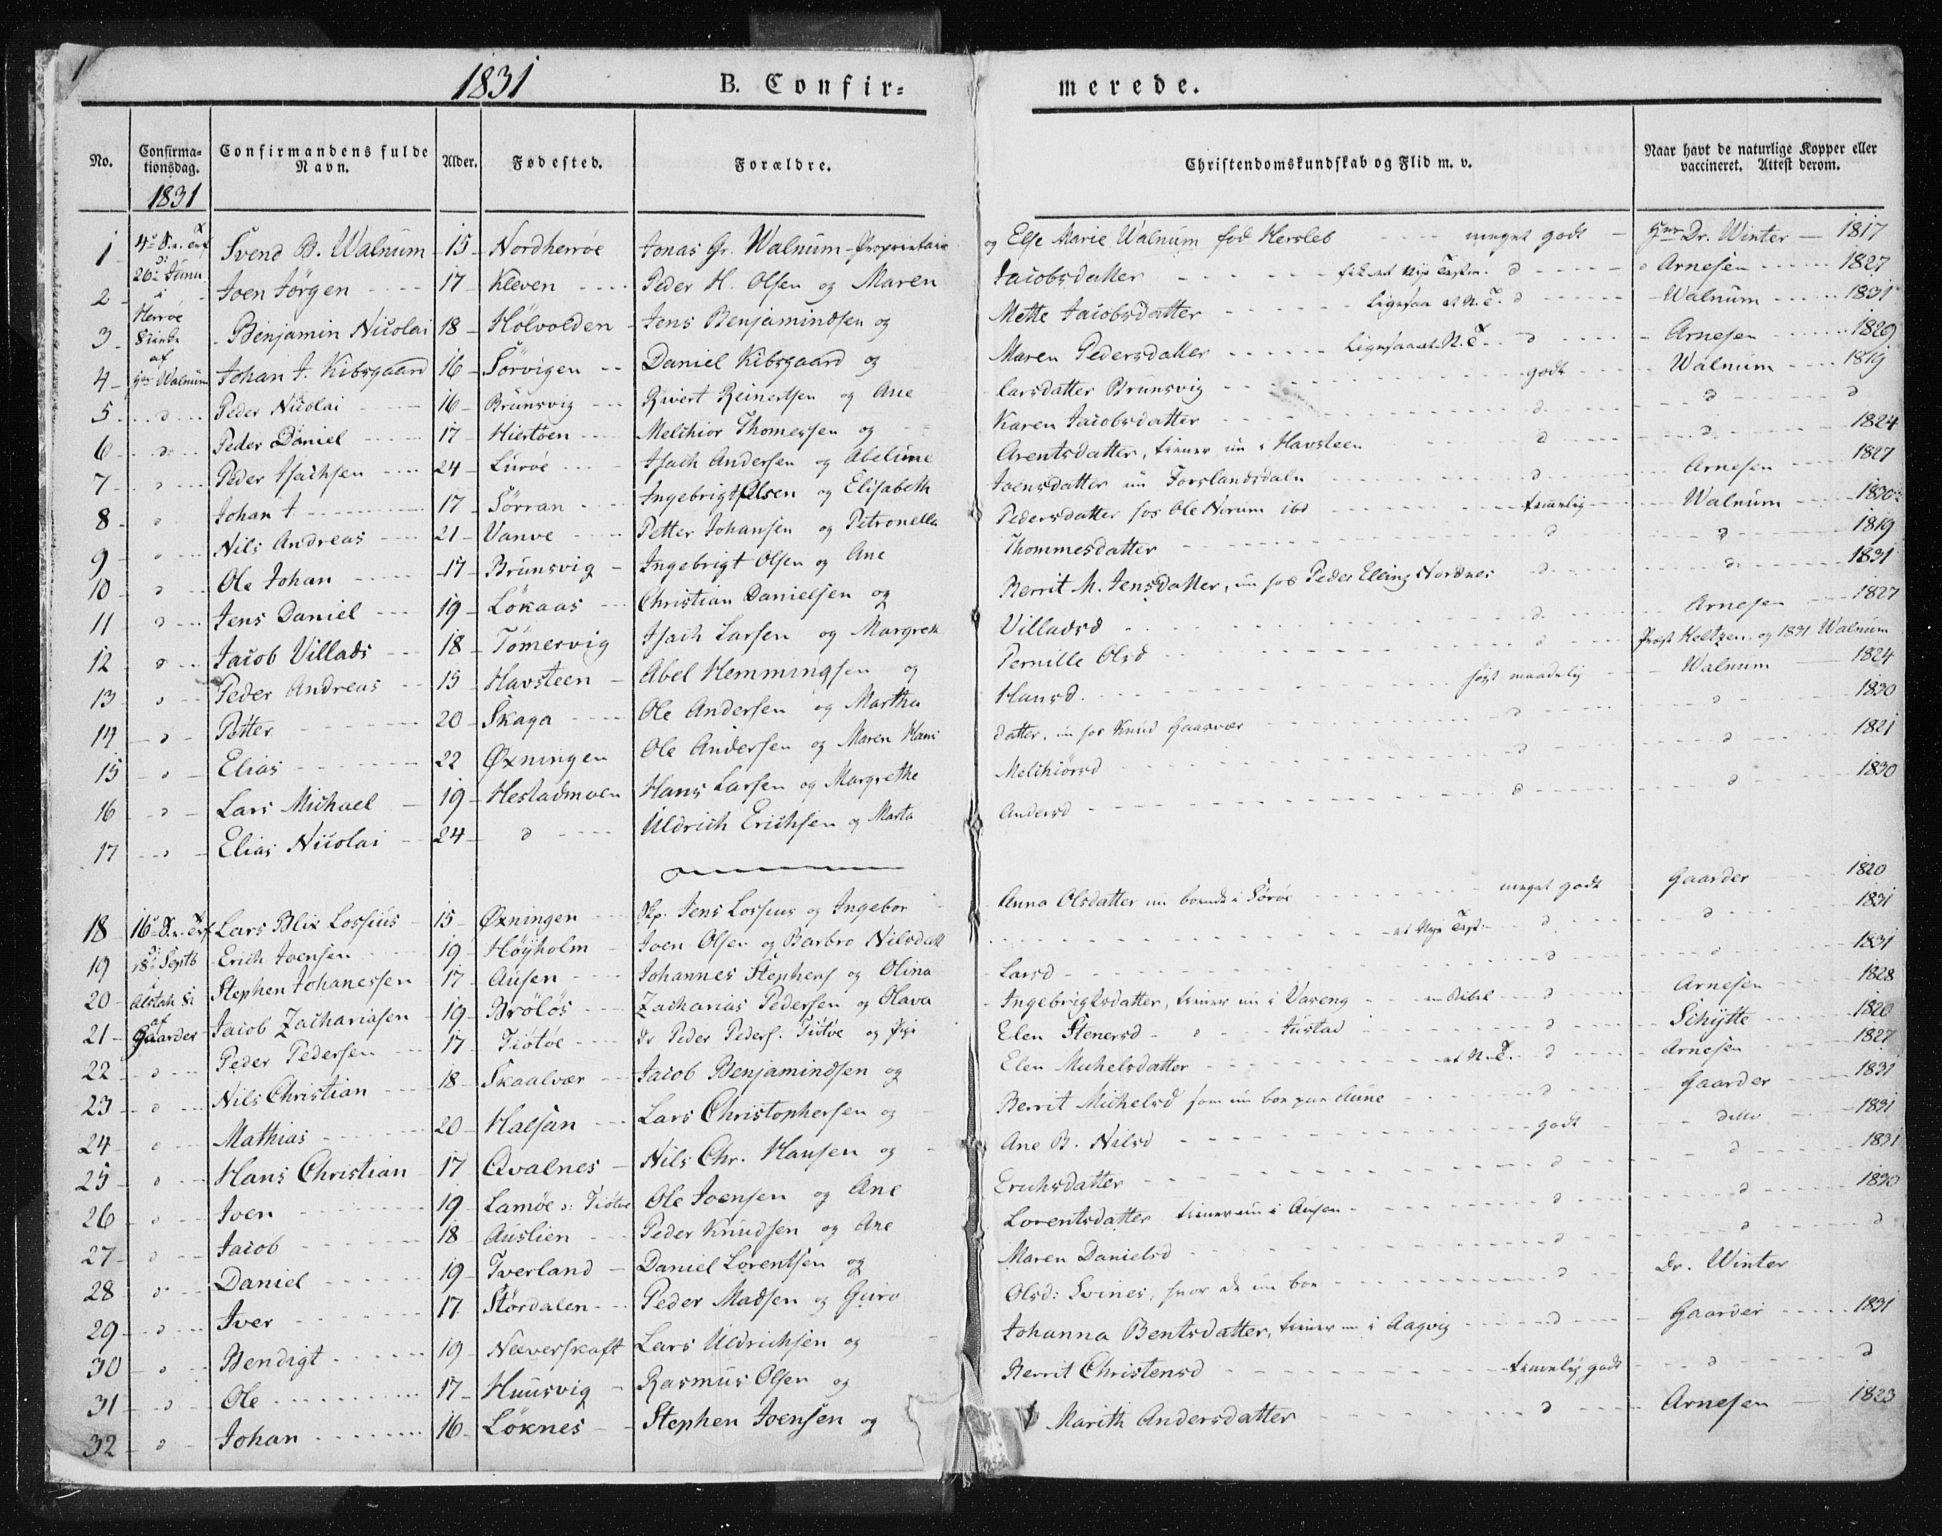 1831 B. Confir= merede.
No. Confirma- tionsdag. 1831 Confirmandens fulde Navn. Alder. Fødested. Forældre. Christendomskundskab og Flid m. v. Naar havt de naturlige Kopper eller vaccineret. Attest derom.
1 4de S. e. Tref Svend B. Walnum 15 Nordherrøe Jonas Gr. Walnum Proprietair og Else Marie Walnum fød Hersleb meget godt Dr. Winter 1817
2 26de Juni i Joen Jörgen 17 Kleven Peder H. Olsen og Maren Jacobsdatter d Arnesen 1827
3 Herröe Kirke Benjamin Nicolai 18 Hölvolden Jens Benjaminsen og Mette Jacobsdatter Ligesaa et N. T. d Walnum 1831
4 af Hr Walnum Johan J. Kibsgaard 16 Sörvigen Daniel Kibsgaard og Maren Pedersdatter Ligesaa et N. T. d Arnesen 1829
5 d Peder Nicolai 16 Brünsvig Rivert Reinertsen og Ane Larsdatter Brunsvig godt Walnum 1819
6 d Peder Daniel 17 Hiertöen Melchior Thomessen og Karen Jacobsdatter d d d
7 d Peder Isachsen 24 Luröe Isach Andersen og Abelune Arentsdatter, tiener nu i Havsteen d d 1824
8 d Johan J 17 Sörran Ingebrigt Olsen og Elisabeth Joensdatter nu Forslandsdaln d Arnesen 1827
9 d Nils Andreas 21 Vanve Petter Johansen og Petronella Pedersdatter hos Ole Norum ibd temmelig Walnum 1830
10 d Ole Johan 17 Brünsvig Ingebrigt Olsen og Ane Thommesdatter d d 1819
11 d Jens Daniel 19 Lökaas Christian Danielsen og Berrit M. Jensdatter, nu hos Peder Elling Nordnes d d 1831
12 d Jacob Villads 18 Tömervig Isach Larsen og Margreth Villadsd d Arnesen 1827
13 d Peder Andreas 15 Havsteen Abel Hemmingsen og Pernille Olsd d Provst Heltzen, og 1831 Walnum
14 d Petter 20 Skaga Ole Andersen og Martha Hansd. høist maadelig Walnum 1824
15 d Elias 22 Øxningen Ole Andersen og Maren Hans datter, nu hos Knud Gaasvær d d 1830
16 d Lars Michael 19 Hestadmoen Hans Larsen og Margrethe Melchiorsd d d 1821
17 d Elias Nicolai 24 d Uldrich Erichsen og Marta Andersd d d 1830
18 16de S. e. Tref Lars Blix Lossius 15 Øxningen Jens Lossius og Ingebor Anna Olsdatter nu boende i Söröe meget godt Gaarder 1820
19 18de Septb Erich Joensen 19 Höyholm Joen Olsen og Barbro Nilsdatt et Nye Test d d 1831
20 Alstah. K Stephen Johanessen 17 Ausen Johannes Stephens og Olina Larsd d d 1831
21 af Gaarder Jacob Zachariasen 19 Brölös Zacharias Pedersen og Olava Ingebrigtsdatter, tiener nu i Vareng en Bibel d Arnesen 1828
22 d Peder Pedersen 17 Tiötöe Peder Peders. Tiötöe og Elen Stenersd d Justad d Schytte 1820
23 d Nils Christian 18 Skaalvær Jacob Benjaminsen og Elen Michelsdatter et N. T. d Arnesen 1827
24 d Mathias 20 Halsan Lars Christophersen og Berrit Michelsd som nu boe paa Aune d Gaarder 1831
25 d Hans Christian 17 Qvalnes Nils Chr. Hansen og Ane B. Nilsd godt ditto 1831
26 d Iven 19 Lamöe Tiötöe Ole Ivensen og Ane Erichsdatter d d 1831
27 d Jacob 18 Auslien Peder Knudsen og Ane Lorentsdatter tiener nu i Ausen d d 1830
28 d Daniel 19 Tverland Daniel Lorentsen og Maren Danielsd d d d
29 d Iver 17 Stördalen Peder Madsen og Guro Olsd: Svines, hvor de nu boe d Dr. Winter
30 d Bendigt 19 Neeverskaft Lars Uldrichsen og Johanna Bentsdatter, tiener nu i Aagvig d Gaarder 1831
31 d Ole 17 Huusvig Rasmus Olsen og Berrit Christensd temmelig godt d d
32 d Johan 16 Löknes Stephen Joensen og Marith Andersdatter d Arnesen 1823